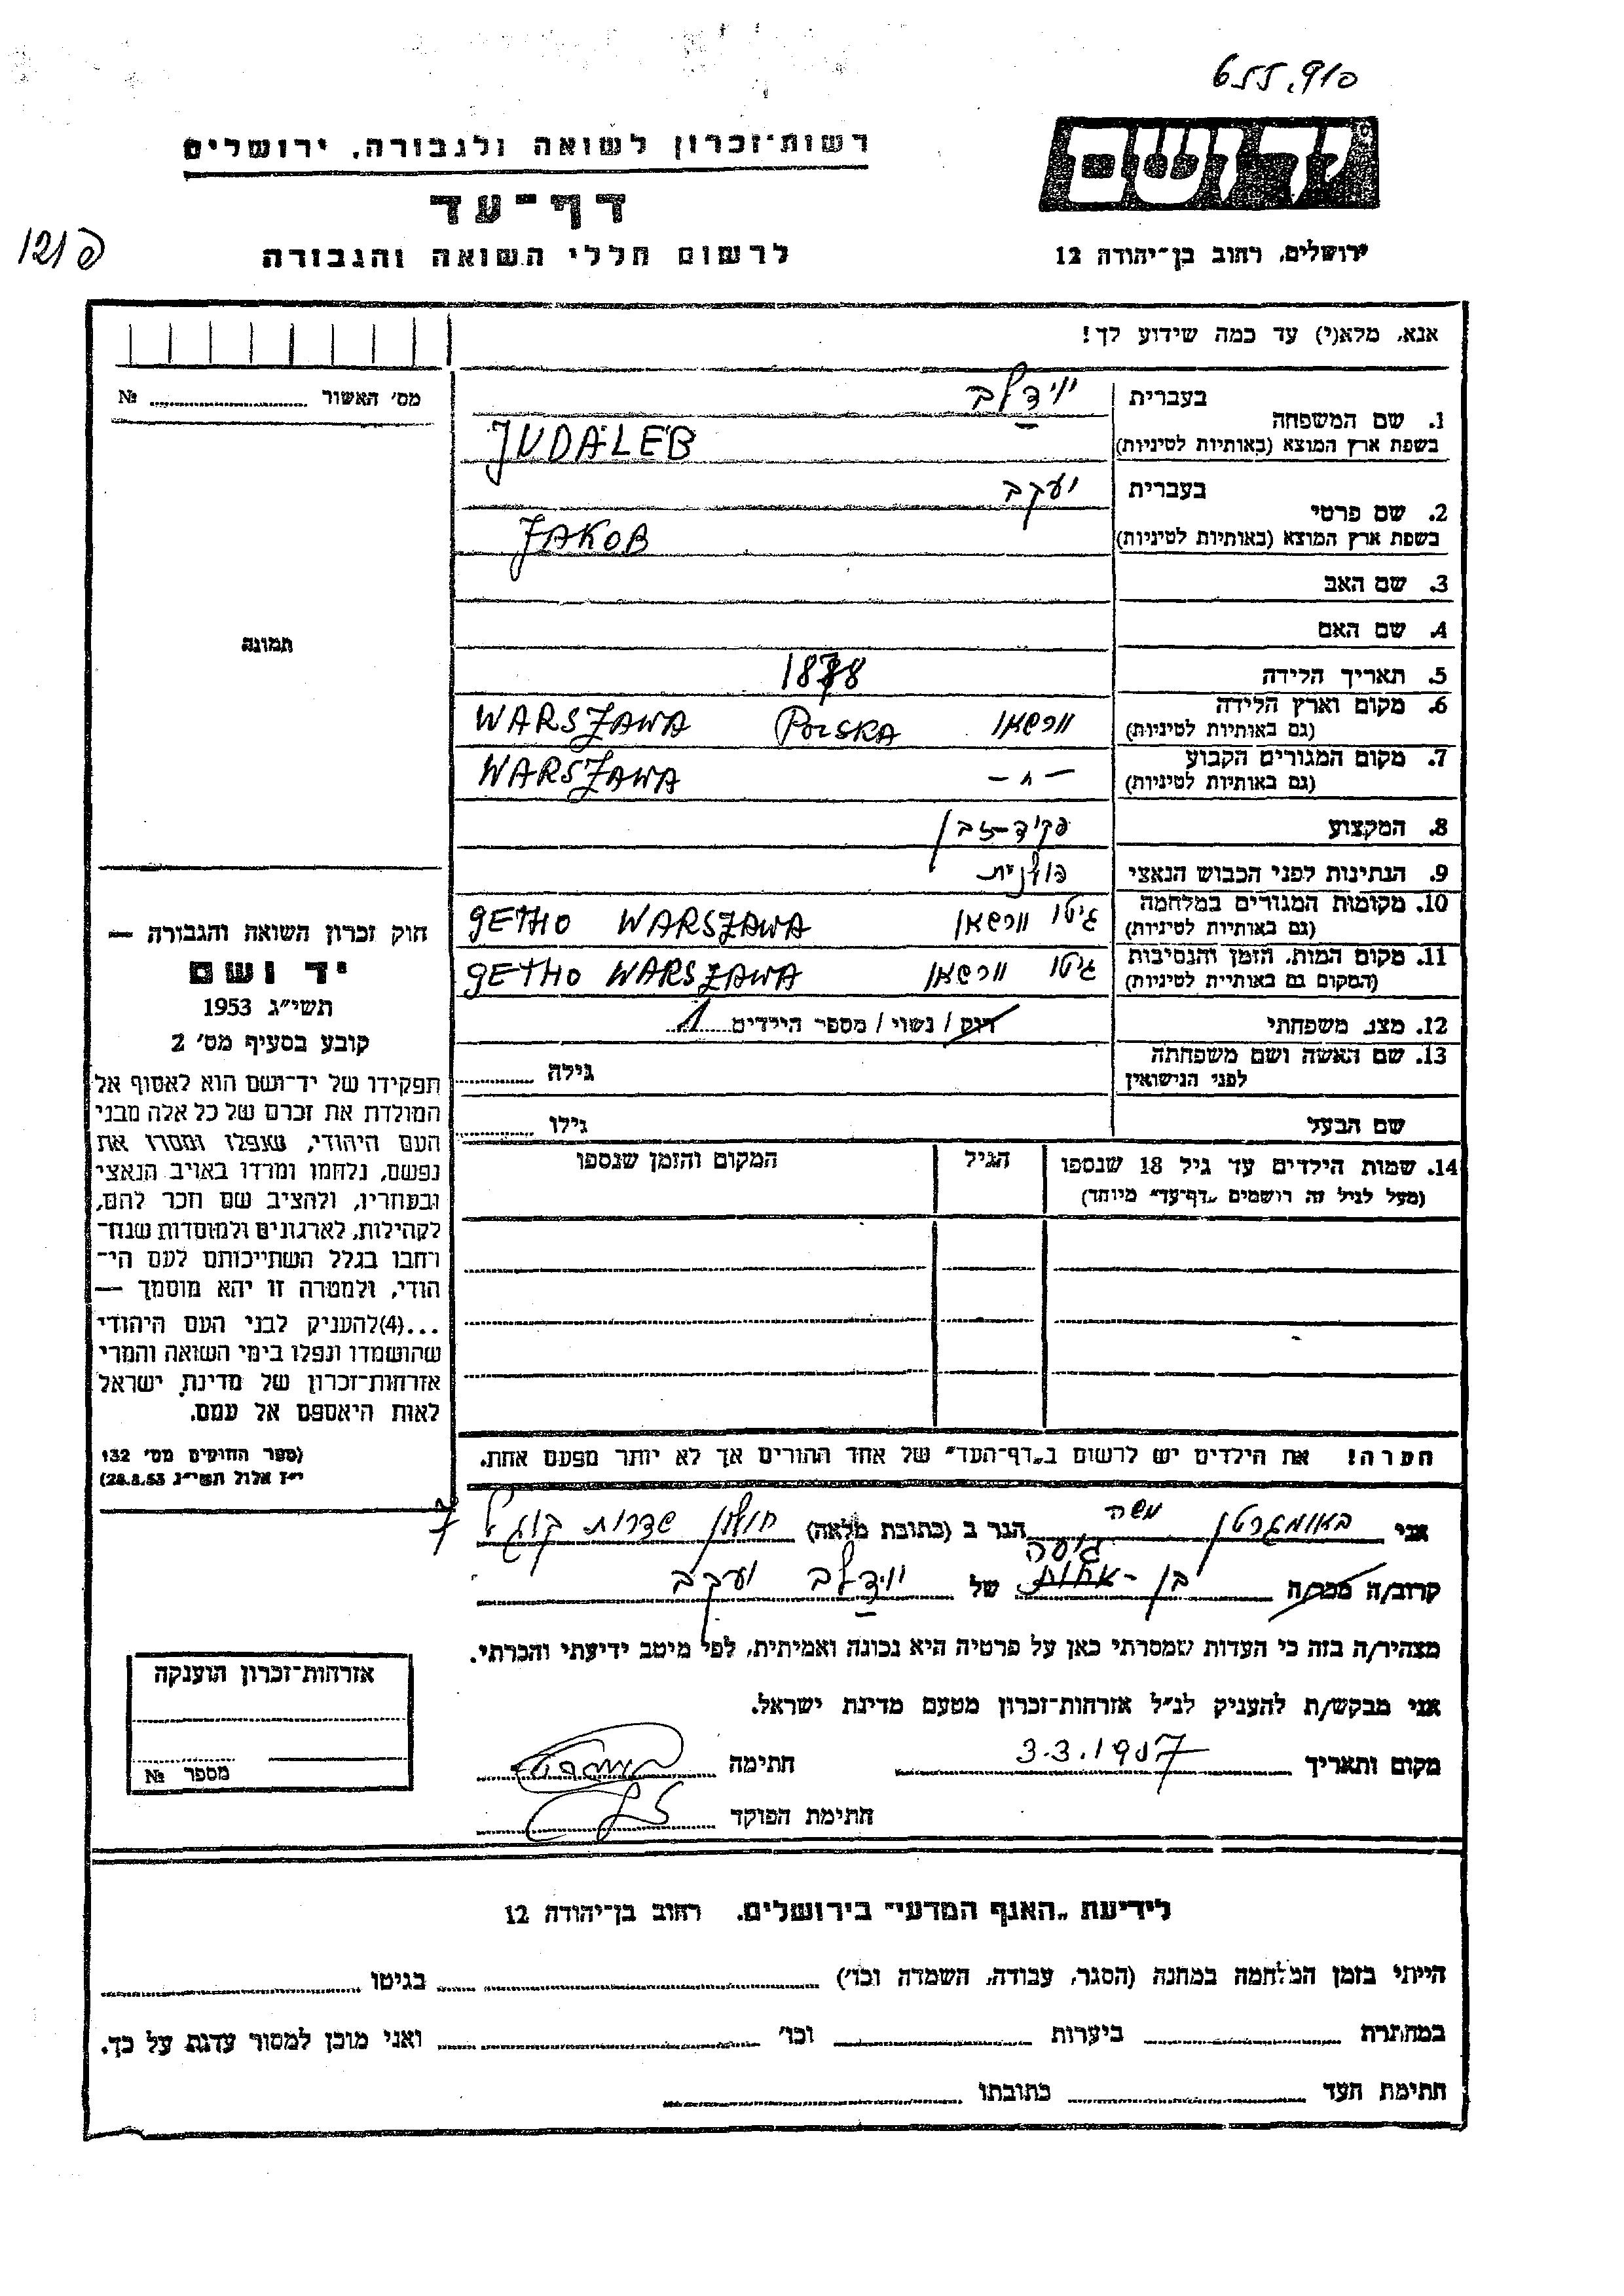 655,910
יד ושם
רשות־זכרון לשואה ולגבורה, ירושלים
דף־עד
לרשום חללי השואה והגבורה
ירושלים, רחוב בן־יהודה 12
אנא, מלא(י) עד כמה שידוע לך!
מס׳ האשור № 
בעברית יודלב
1. שם המשפחה
בשפת ארץ המוצא (באותיות לטיניות) JUDALEB
בעברית יעקב
2. שם פרטי
בשפת ארץ המוצא (באותיות לטיניות) JAKOB
3. שם האב
4. שם האם
תמונה
5. תאריך הלידה 1878
6. מקום וארץ הלידה ורשאו POLSKA WARSZAWA
(גם באותיות לטיניות)
7. מקום המגורים הקבוע — ״ — WARSZAWA
(גם באותיות לטיניות)
8. המקצוע פקיד-זבן
9. הנתינות לפני הכבוש הנאצי פולנית
10. מקומות המגורים במלחמה גיטו וורשאו GETHO WARSZAWA
(גם באותיות לטיניות)
11. מקום המות, הזמן והנסיבות גיטו וורשאו GETHO WARSZAWA
(המקום גם באותיית לטיניות)
12. מצב משפחתי רוק / נשוי / מספר הילדים 1
13. שם האשה ושם משפחתה גילה
לפני הנישואין
שם הבעל גילו
14. שמות הילדים עד גיל 18 שנספו הגיל המקום והזמן שנספו
(מעל לגיל זה רושמים „דף־עד״ מיוחד)
הערה! את הילדים יש לרשום ב„דף־העד״ של אחד ההורים אך לא יותר מפעם אחת.
חוק זכרון השואה והגבורה —
יד ושם
תשי״ג 1953
קובע בסעיף מס׳ 2
תפקידו של יד־ושם הוא לאסוף אל
המולדת את זכרם של כל אלה מבני
העם היהודי, שנפלו ומסרו את
נפשם, נלחמו ומרדו באויב הנאצי
ובעוזריו, ולהציב שם וזכר להם,
לקהילות, לארגונים ולמוסדות שנח־
רחבו בגלל השתייכותם לעם הי־
הודי, ולמטרה זו יהא מוסמך —
...(4)להעניק לבני העם היהודי
שהושמדו ונפלו בימי השואה והמרי
אזרחות־זכרון של מדינת ישראל
לאות היאספם אל עמם.
(ספר החוקים מס׳ 132
י״ז אלול תשי״ג 28.8.53)
אני באומגרטן משה הגר ב (כתובת מלאה) חולון שדרות קוגל 7
קרוב/ה מכר/ה בן - אחות גיסה של יודלב יעקב
מצהיר/ה בזה כי העדות שמסרתי כאן על פרטיה היא נכונה ואמיתית, לפי מיטב ידיעתי והכרתי.
אני מבקש/ת להעניק לנ״ל אזרחות־זכרון מטעם מדינת ישראל.
מקום ותאריך 3.3.1957 חתימה
חתימת הפוקד
אזרחות־זכרון הוענקה
מספר №
לידיעת „האגף המדעי״ בירושלים. רחוב בן־יהודה 12
הייתי בזמן המלחמה במחנה (הסגר, עבודה, השמדה וכו׳) בגיטו
במחתרת ביערות וכו׳ ואני מוכן למסור עדות על כך.
חתימת העד כתובתו